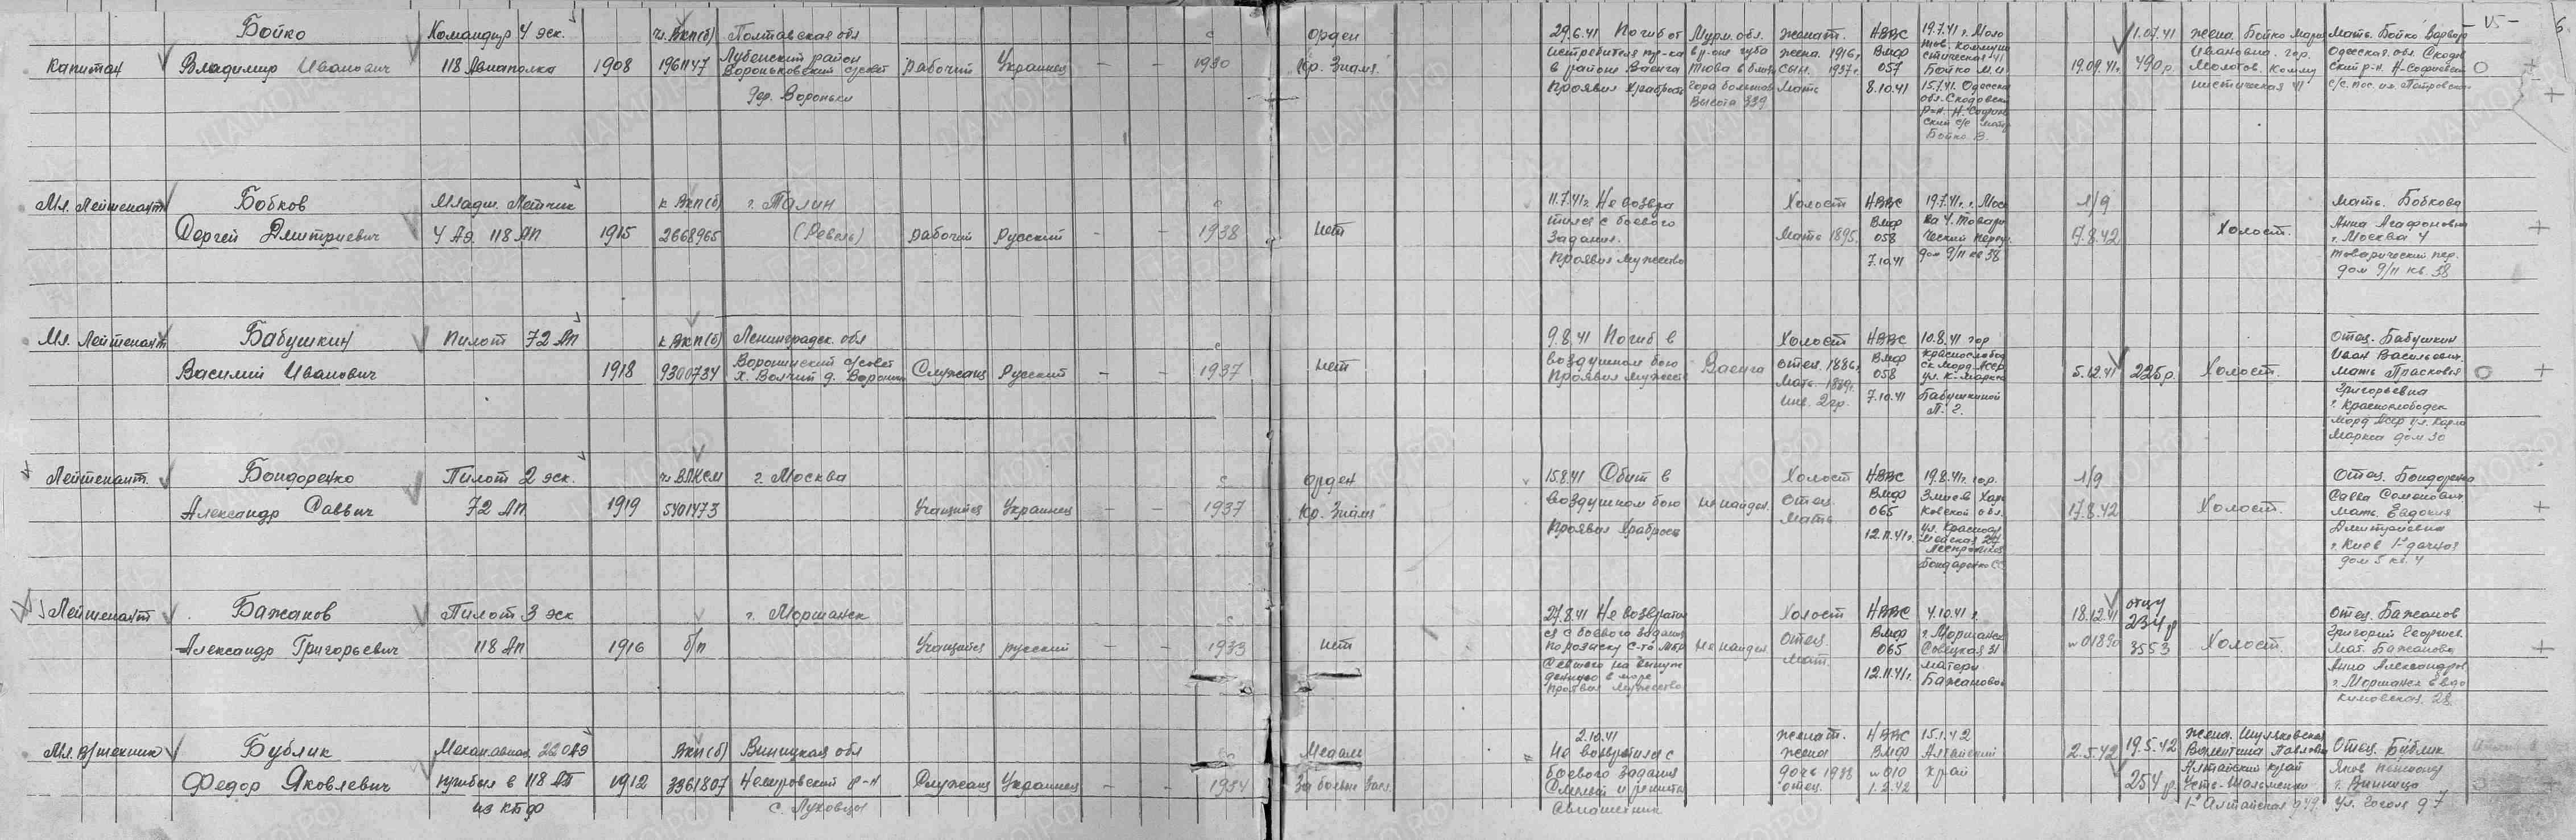 Бойко
Капитан Владимир Иванович
Командир 4 эск.
118 Авиаполка
1908
чл. ВКП(б)
1961147
Полтавская обл
Лубенский район
Вороньковский с/совет
дер. Вороньки
Рабочий Украинец - - 1930
Орден
"Кр. Знамя"
29.6.41 Погиб от
истребителя пр-ка
в районе Ваенга
Проявил храбрость
Мурм. обл.
Высота 339
женат.
жена. 1916г.
сын. 1937г.
Мать
НВВС
ВМФ
057
8.10.41
19.7.41 г. Моло
тов. Коммуни
стическая 41
Бойко М.И.
15.7.41. Одесская
Бойко В.
19.09.41г.
1.07.41
490р.
жена. Бойко Мария
Ивановна. гор.
Молотов. Комму
нистическая 41
Мать. Бойко Варвар
Одесская. обл.
- 15 -
Мл. Лейтенант
Бобков
Сергей Дмитриевич
Младш. Летчик
4 АЭ. 118 АП
1915
к ВКП(б)
2668965
г. Талин
(Ревель)
Рабочий Русский - - 1938
Нет
11.7.41г. Не возвра
тился с боевого
задания.
Проявил мужество
Холост
Мать 1895г.
НВВС
ВМФ
058
7.10.41
19.7.41г. г. Мос
ква 4. Товари
ческий переул.
дом 9/11 кв 38
1/9
17.8.42
Холост.
Мать. Бобкова
Анна Агафоновна
г. Москва 4
товарический пер.
дом 9/11 кв. 38
Мл. Лейтенант
Бабушкин
Василий Иванович
Пилот 72 АП
1918
к ВКП(б)
9300734
Ленинградск. обл
Служащ Русский - - 1937
Нет
9.8.41 Погиб в
воздушном бою
Проявил мужест
Ваенга
Холост
отец. 1886г.
Мать. 1889г.
инв. 2гр.
НВВС
ВМФ
058
7.10.41
10.8.41 гор
Краснослобод
ск Морд. АССР
ул. К-Маркса
Бабушкиной
П. Г.
5.12.41
225р.
Холост.
Отец. Бабушкин
Иван Васильевич.
Мать Прасковья
Григорьевна
г. Краснослободск
Морд АССР ул. Карла
Маркса дом 30
Лейтенант.
Бондоренко
Александр Саввич
Пилот 2 эск.
72 АП
1919
чл ВЛКСМ
5401473
г. Москва
Учащийся Украинец - - 1937
Орден
"Кр. Знамя"
15.8.41 Сбит в
воздушном бою
Проявил храброст
не найден.
Холост
Отец
Мать
НВВС
ВМФ
065
12.11.41г.
19.8.41г. гор.
Змиев Харь
ковской обл.
ул. Красноар
мейская 24
Бондаренко С.С.
1/9
17.8.42
Холост.
Отец. Бондоренко
Савва Семенович
Мать. Евдокия
Дмитриевна
г. Киев
дом 5 кв. 4
Лейтенант
Бажанов
Александр Григорьевич
Пилот 3 эск
118 АП
1916
б/п
г. Моршанск
Учащийся русский - - 1933
Нет
27.8.41 Не возвратил
ся с боевого задания
по розыску с-та МБР
севшего на вынуж
денную в море
проявил мужество
не найден.
Холост
Отец
Мат.
НВВС
ВМФ
065
12.11.41г.
4.10.41 г.
г. Моршанск
Советская 31
матери
Бажановой
18.12.41
N 01890
отцу
234р
3553
Холост.
Отец. Бажанов
Григорий Георгиев.
Мат. Бажанова
Анна Александров
г. Моршанск Евдо
кимовская. 28.
Мл. в/техник
Бублик
Федор Яковлевич
Механ. авиац. 22 АЭ
прибыл в 118 АП
из КБФ
1912
ВКП(б)
3361807
Виницкая обл
Немировский р-н
с. Луковцы
Служащ Украинец - - 1934
Медаль
За боевые Засл.
2.10.41
Не возвратился с
боевого задания
Смелый и решит.
Авиатехник
женат.
жена
дочь 1938
отец.
НВВС
ВМФ
N 010
1.2.42
15.1.42
Алтайский
край
2.5.42
19.5.42
254 р.
Валентина Павловна
Алтайский край
1-я Алтайская
Отец. Бублик
г. Винница
ул. Гоголя д 7